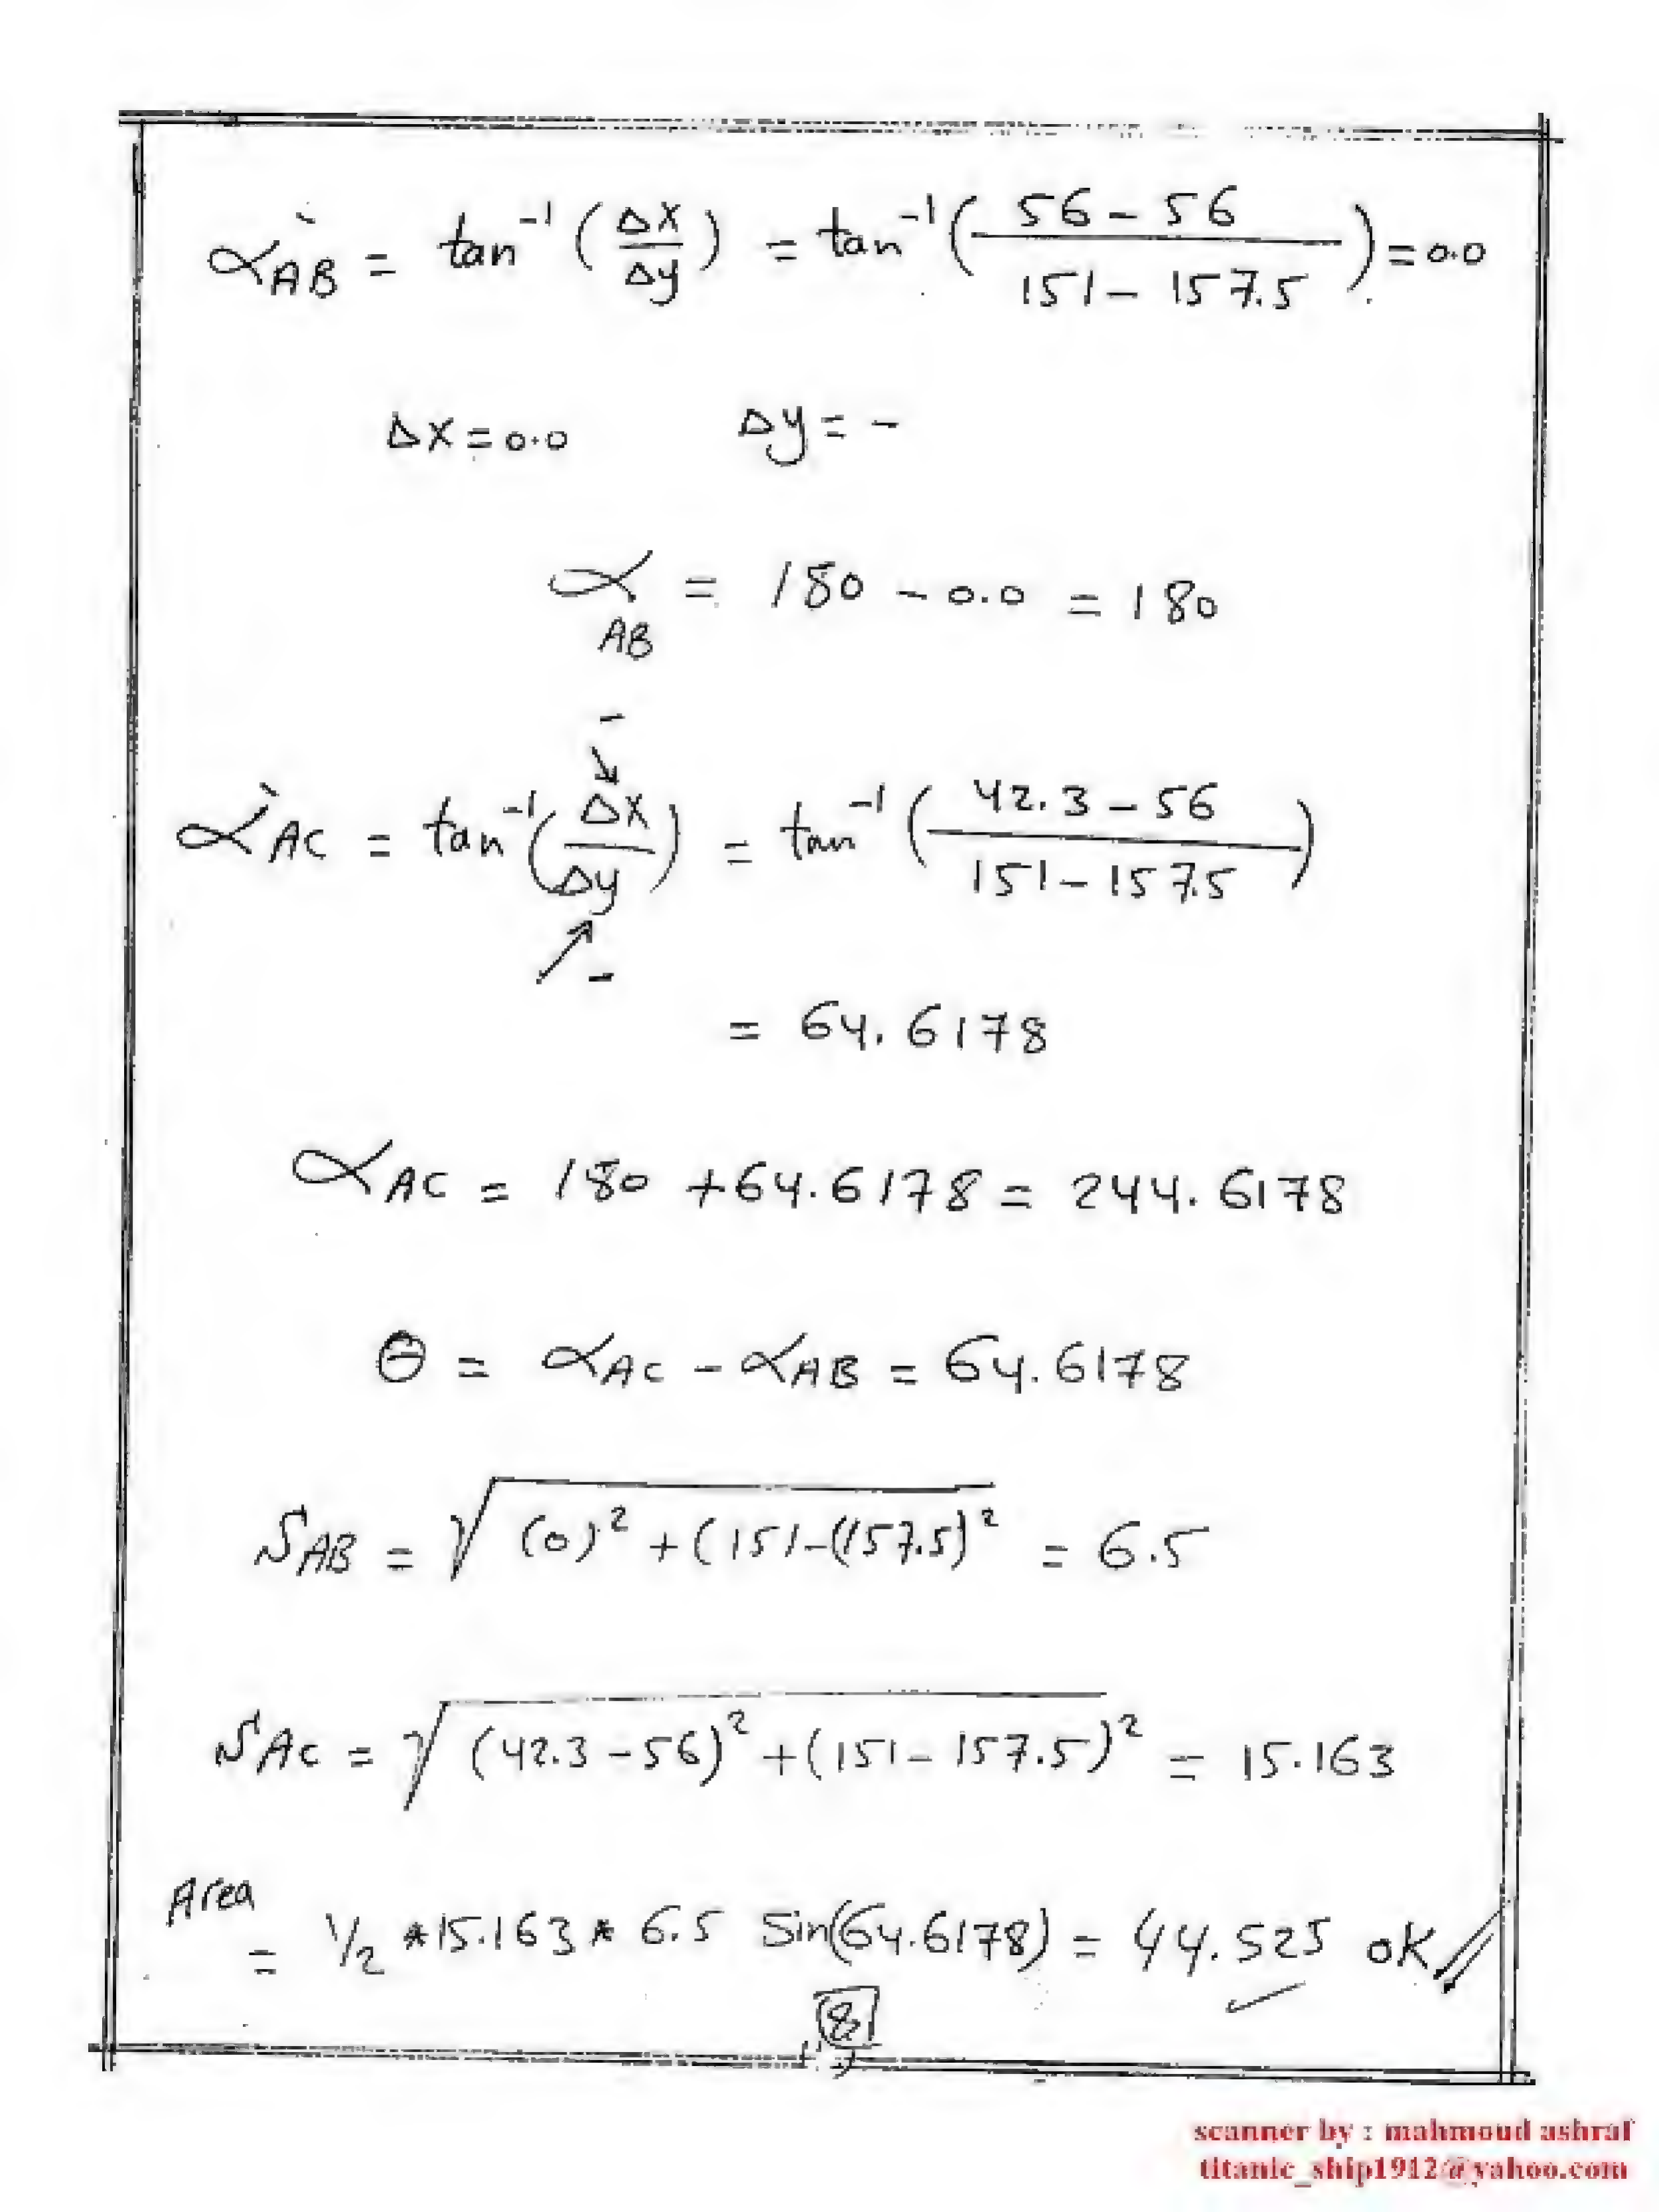 ὰAB = tan⁻¹ (Δx/Δy) = tan⁻¹ ((56 - 56)/(151 - 157.5)) = 0.0
Δx = 0.0 Δy = -
αAB = 180 - 0.0 = 180
-
ὰAC = tan⁻¹ (Δx/Δy) = tan⁻¹ ((42.3 - 56)/(151 - 157.5))
-
= 64.6178
αAC = 180 + 64.6178 = 244.6178
θ = αAC - αAB = 64.6178
SAB = √(0)² + (151 - (157.5)² = 6.5
SAC = √(42.3 - 56)² + (151 - 157.5)² = 15.163
Area = 1/2 * 15.163 * 6.5 Sin(64.6178) = 44.525 OK
8
scanner by : mahmoud ashraf
titanic_ship1912@yahoo.com